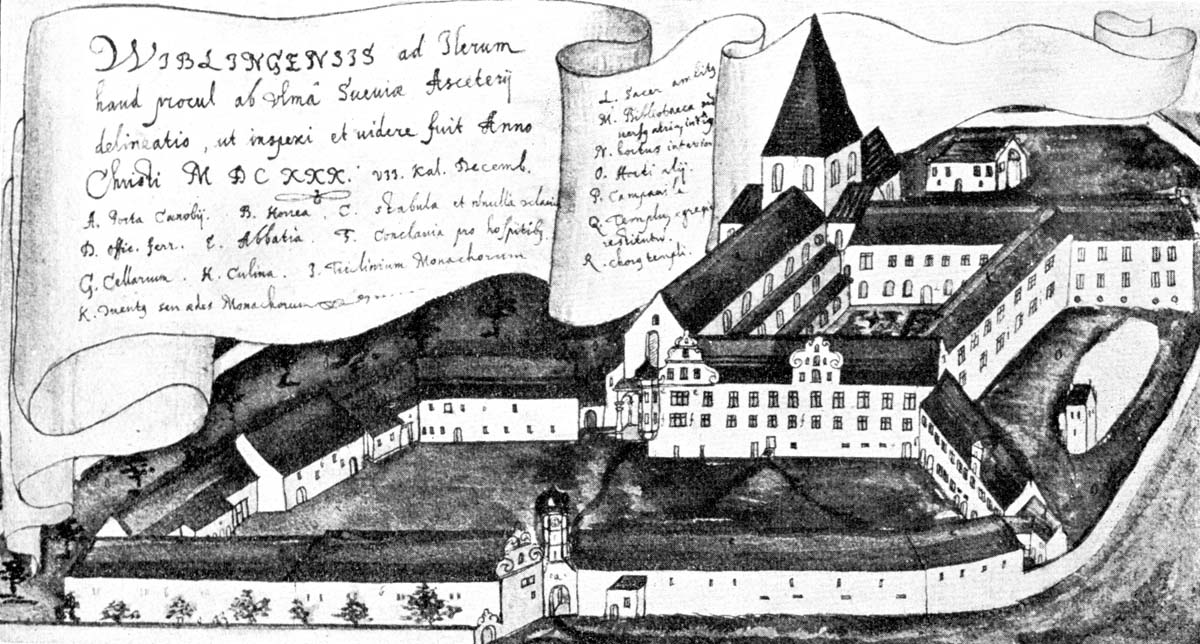 WIBLINGENSIS ad Ilerum
haud procul ab Vlmâ Sueuiæ Asceterij
delineatio, ut inspexi et uidere fuit Anno
Christi M DC XXX. VII. Kal. Decemb.
A. Porta Cænobij. B. Horrea. C. stabula et
D. offic. ferr. E. Abbatia. F. Conclavia pro hospitibq.
G. Cellarum. H. Culina. J. Triclinium Monachorum
K. seu ædes Monachorum
L. Sacer
M. Bibliotheca
N. hortus interior
O. Horti alij.
P. Campanile
Q. Templum egregie
restitutum.
R. chorq templi.